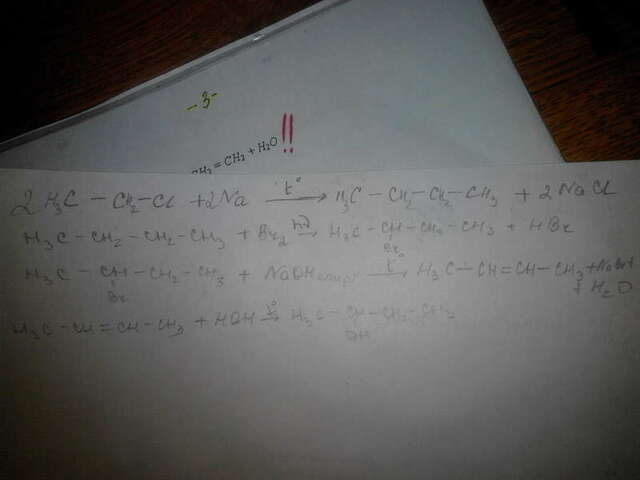 -3-
CH₂ = CH₂ + H₂O !!
2 H₃C – CH₂ – Cl + 2Na t° → H₃C – CH₂ – CH₂ – CH₃ + 2NaCl
H₃C – CH₂ – CH₂ – CH₃ + Br₂ hν → H₃C – CH – CH₂ – CH₃ + HBr
Br
H₃C – CH – CH₂ – CH₃ + NaOH спирт t° → H₃C – CH = CH – CH₃ + NaBr +
Br
+ H₂O
H₃C – CH = CH – CH₃ + HOH t° → H₃C – CH – CH₂ – CH₃
OH